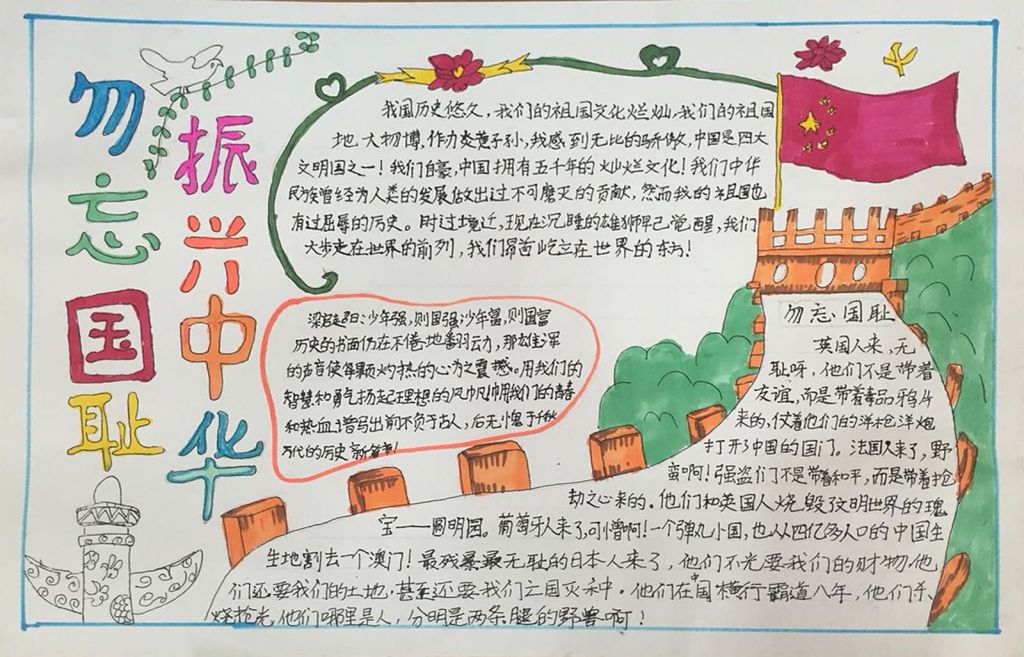 勿忘国耻
振兴中华
我国历史悠久，我们的祖国文化烂灿，我们的祖国
地大物博，作为炎黄子孙，我感到无比的骄傲，中国是四大
文明国之一！我们自豪，中国拥有五千年的灿烂文化！我们中华
民族曾经为人类的发展做出过不可磨灭的贡献，然而我的祖国也
有过屈辱的历史。时过境迁，现在沉睡的雄狮早已觉醒，我们
大步走在世界的前列，我们昂首屹立在世界的东方！
梁启超曰：少年强，则国强；少年富，则国富
历史的书面仍在不倦地翻动，那雄浑
的声音使每颗灼热的心为之震撼。用我们的
智慧和勇气扬起理想的风帆用我们的青春
和热血谱写出前不负于古人，后无愧于千秋
万代的历史新篇章！
勿忘国耻
英国人来，无
耻呀，他们不是带着
友谊，而是带着毒品鸦片
来的，仗着他们的洋枪洋炮
打开了中国的国门。法国人来了，野
蛮啊！强盗们不是带着和平，而是带着抢
劫之心来的。他们和英国人烧毁了文明世界的瑰
宝——圆明园。葡萄牙人来了，可憎啊！一个弹丸小国，也从四亿多人口的中国生
生地割去一个澳门！最残暴最无耻的日本人来了，他们不光要我们的财物，他
们还要我们的土地，甚至还要我们亡国灭种。他们在中国横行霸道八年，他们杀
烧抢光，他们哪里是人，分明是两条腿的野兽啊！